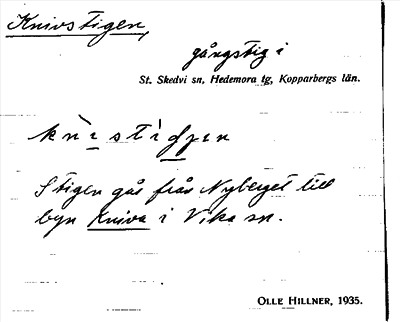 Knivstigen,
gångstig i
St. Skedvi sn, Hedemora tg, Kopparbergs län.
Stigen går från Nyberget till
byn Kniva i Vika sn.
OLLE HILLNER, 1935.